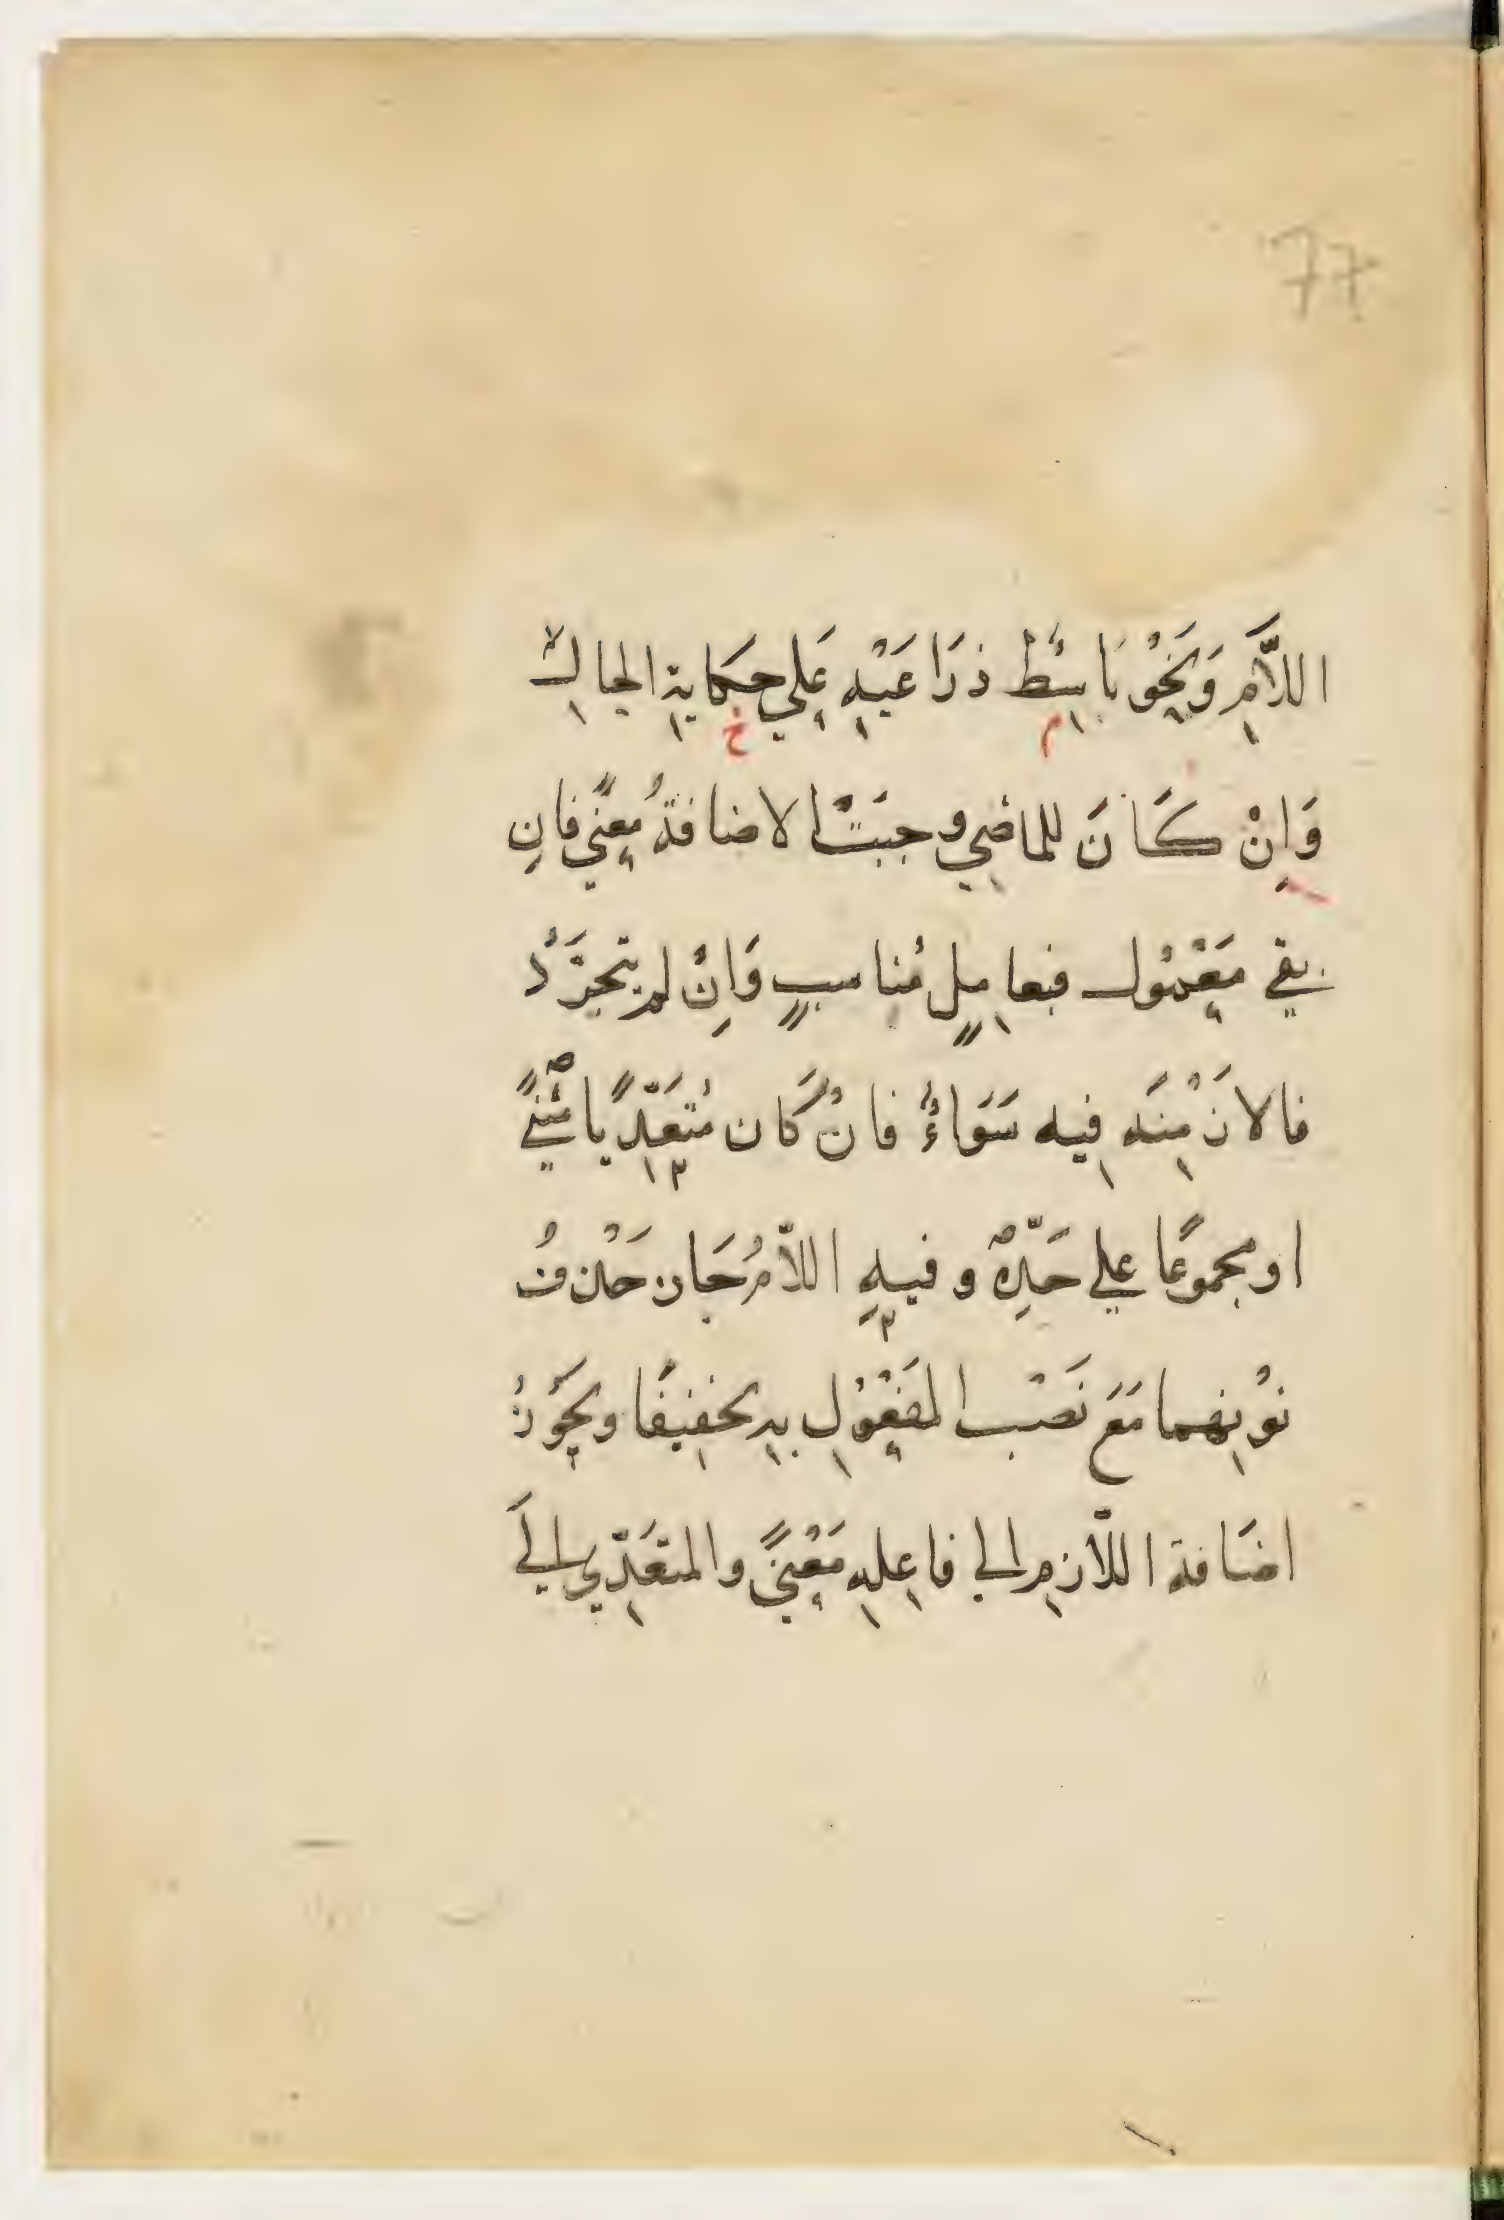 77
اللَّامِ وَنَحْوُ بَاسِطٌ ذرَاعَيْهِ عَلي حِكَايةِ الحَالِ
وَاِنْ كَانَ للماضِي وجبَتْ الاضافةُ معْنًي فاِن
بقي مَعْمُول فبعامِلٍ مُناسبٍ وَاِنْ لم يتجرَّدْ
فالازْمِنَه فِيه سَوَاءٌ فانْ كَان مُتَعَدِّيًا مثنًي
او مجموعًا علي حَدِّهٌ وفيهِ اللّامُ جَاز حَذفُ
نوْنِهما مَعَ نَصْب المَفعُوْلِ بهِ تخفِيفًا ويجَوزُ
اضَافة اللّازمِ الي فاعِلِهِ مَعْنيً والمتعَدِّي اليَ